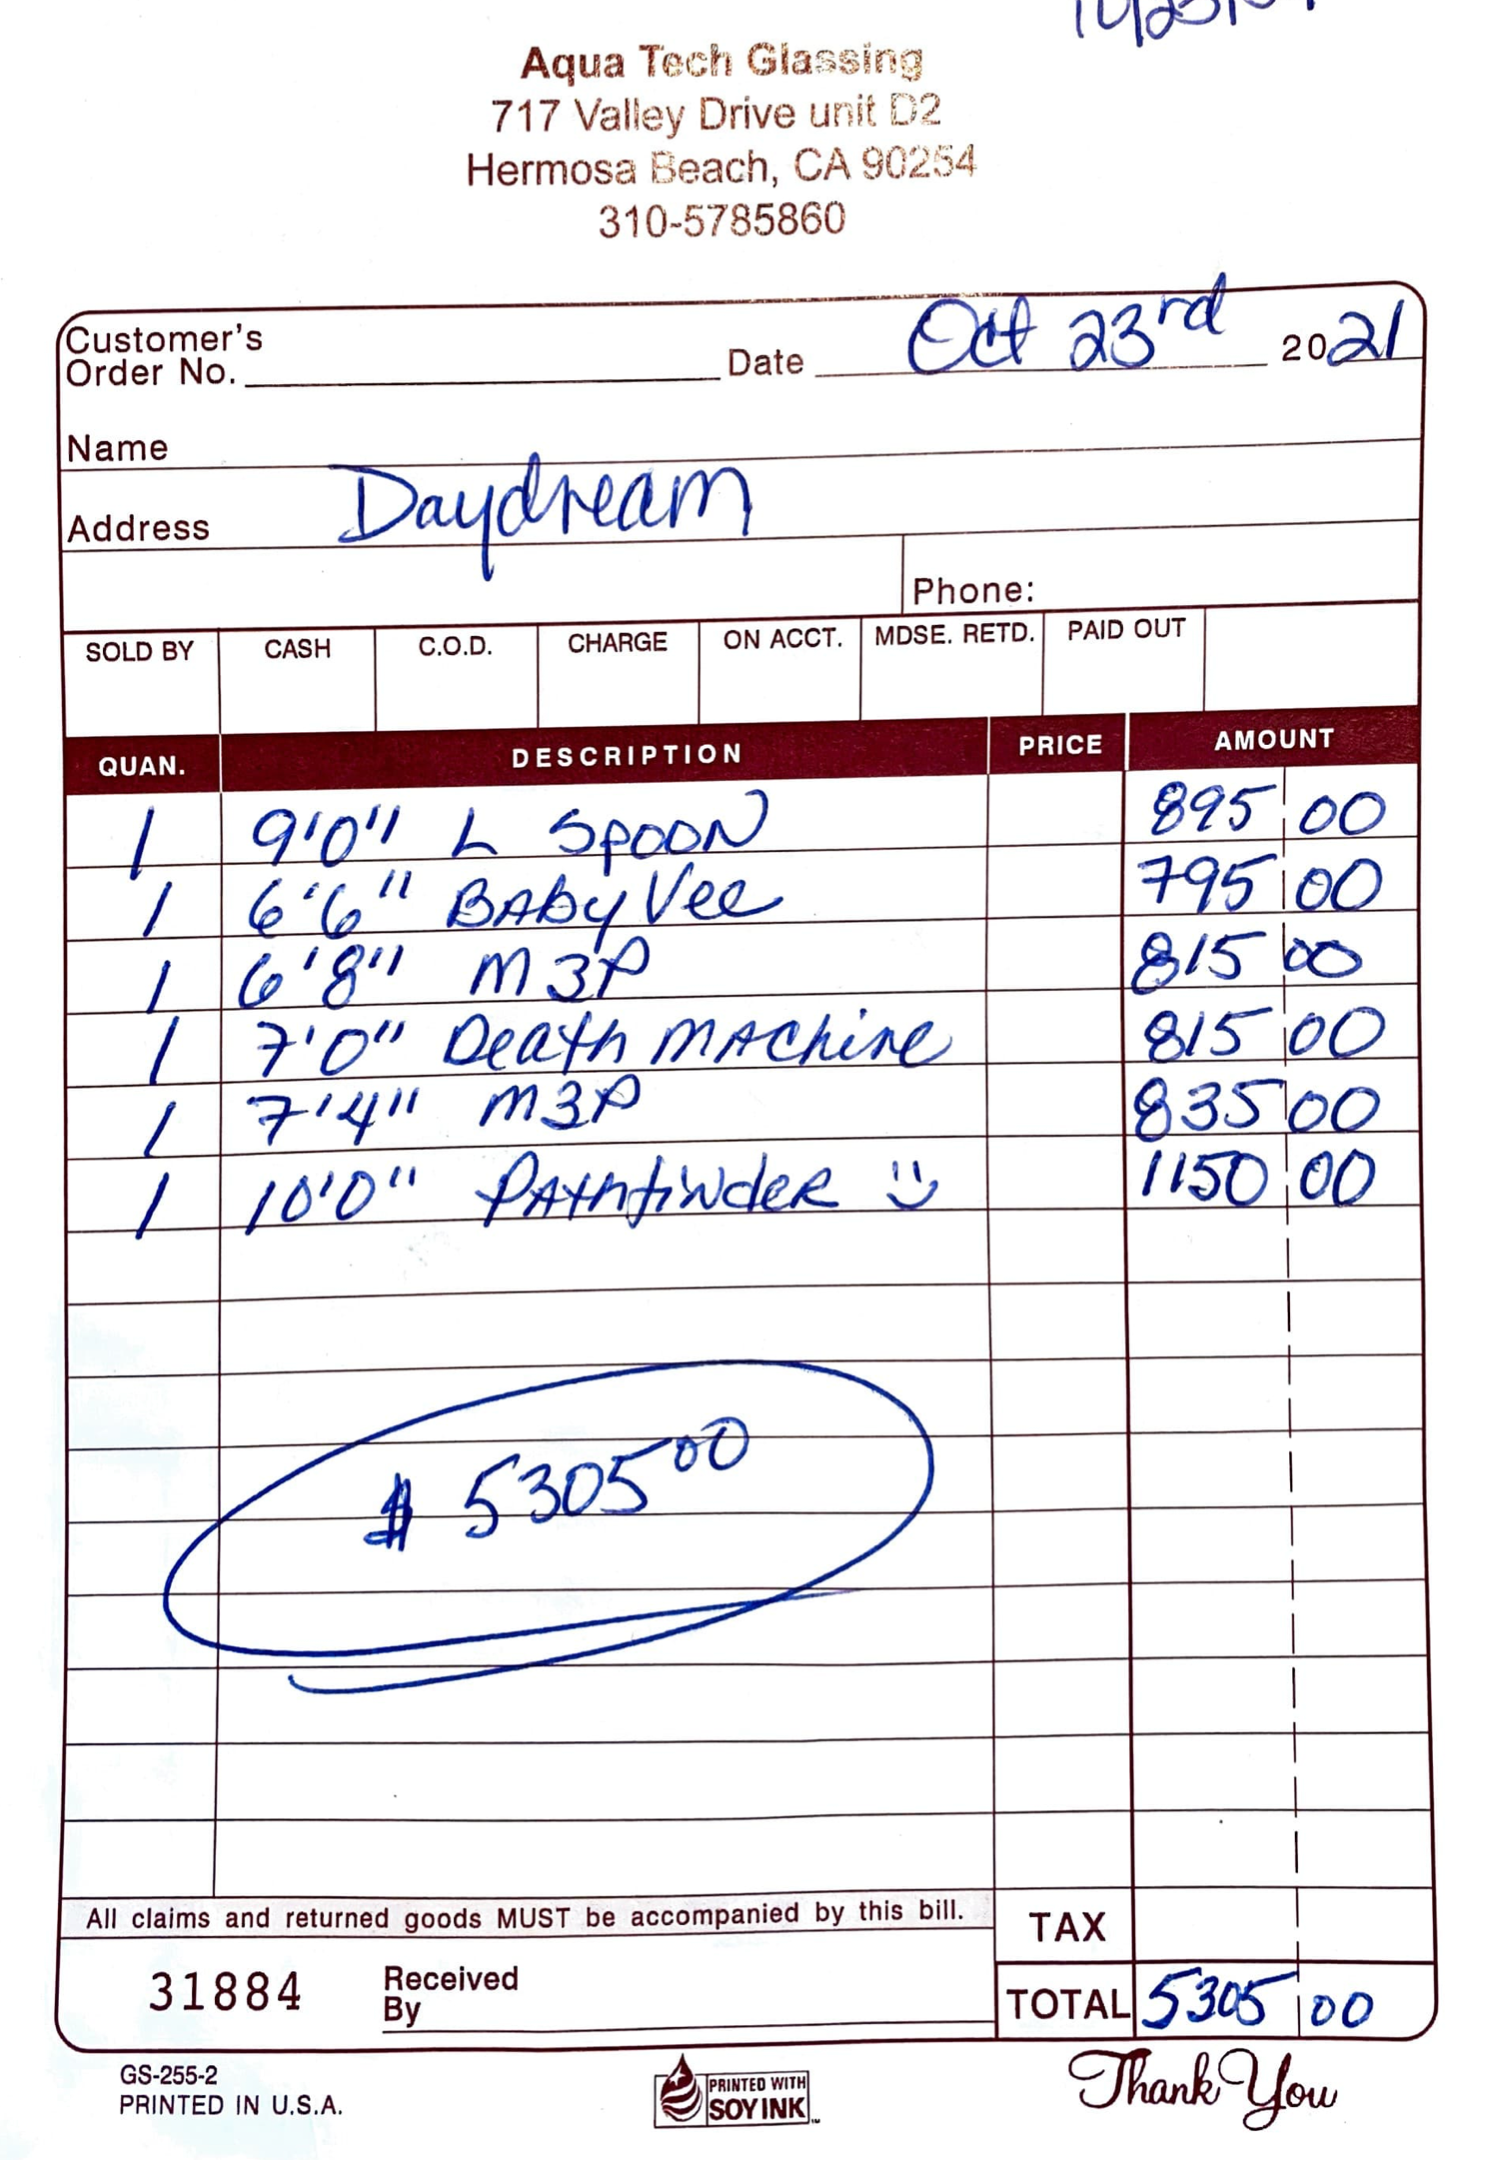 Aqua Tech Glassing
717 Valley Drive unit D2
Hermosa Beach, CA 90254
310-5785860
Customer's
Order No. Date Oct 23rd 2021
Name
Address Daydream
Phone:
SOLD BY CASH C.O.D. CHARGE ON ACCT. MDSE. RETD. PAID OUT
QUAN. DESCRIPTION PRICE AMOUNT
1 9'0" L SPOON 895 00
1 6'6" BAby Vee 795 00
1 6'8" M3P 815 00
1 7'0" Death MAchine 815 00
1 7'4" M3P 835 00
1 10'0" PAthfiNdeR 1150 00
$ 5305 00
All claims and returned goods MUST be accompanied by this bill.
TAX
31884 Received
By
TOTAL 5305 00
GS-255-2
PRINTED IN U.S.A.
PRINTED WITH
SOY INK
Thank You